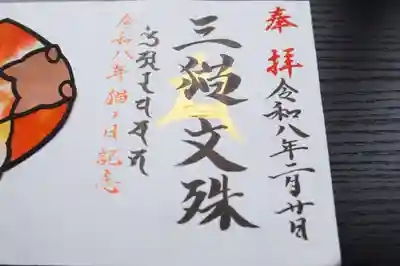 奉拝
令和八年二月廿日
三猫文殊
令和八年猫ノ日記念